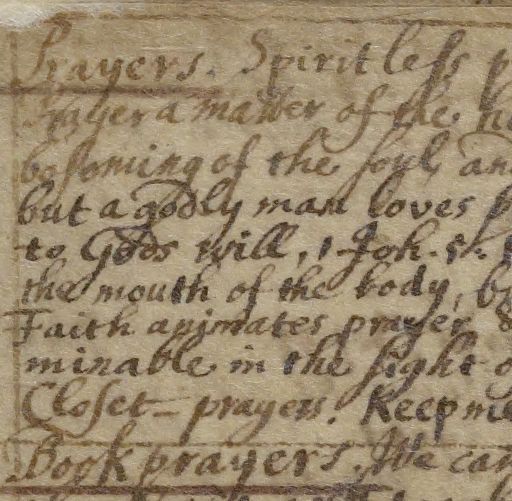 Prayers. Spiritless p
Prayer a matter of the he
bosoming of the soul, and
but a godly man loves
to Gods will, 1 Joh. 5.
the mouth of the body, b
Faith animates prayer
minable in the sight o
Closet-prayers. Keep me
Book prayers. We can